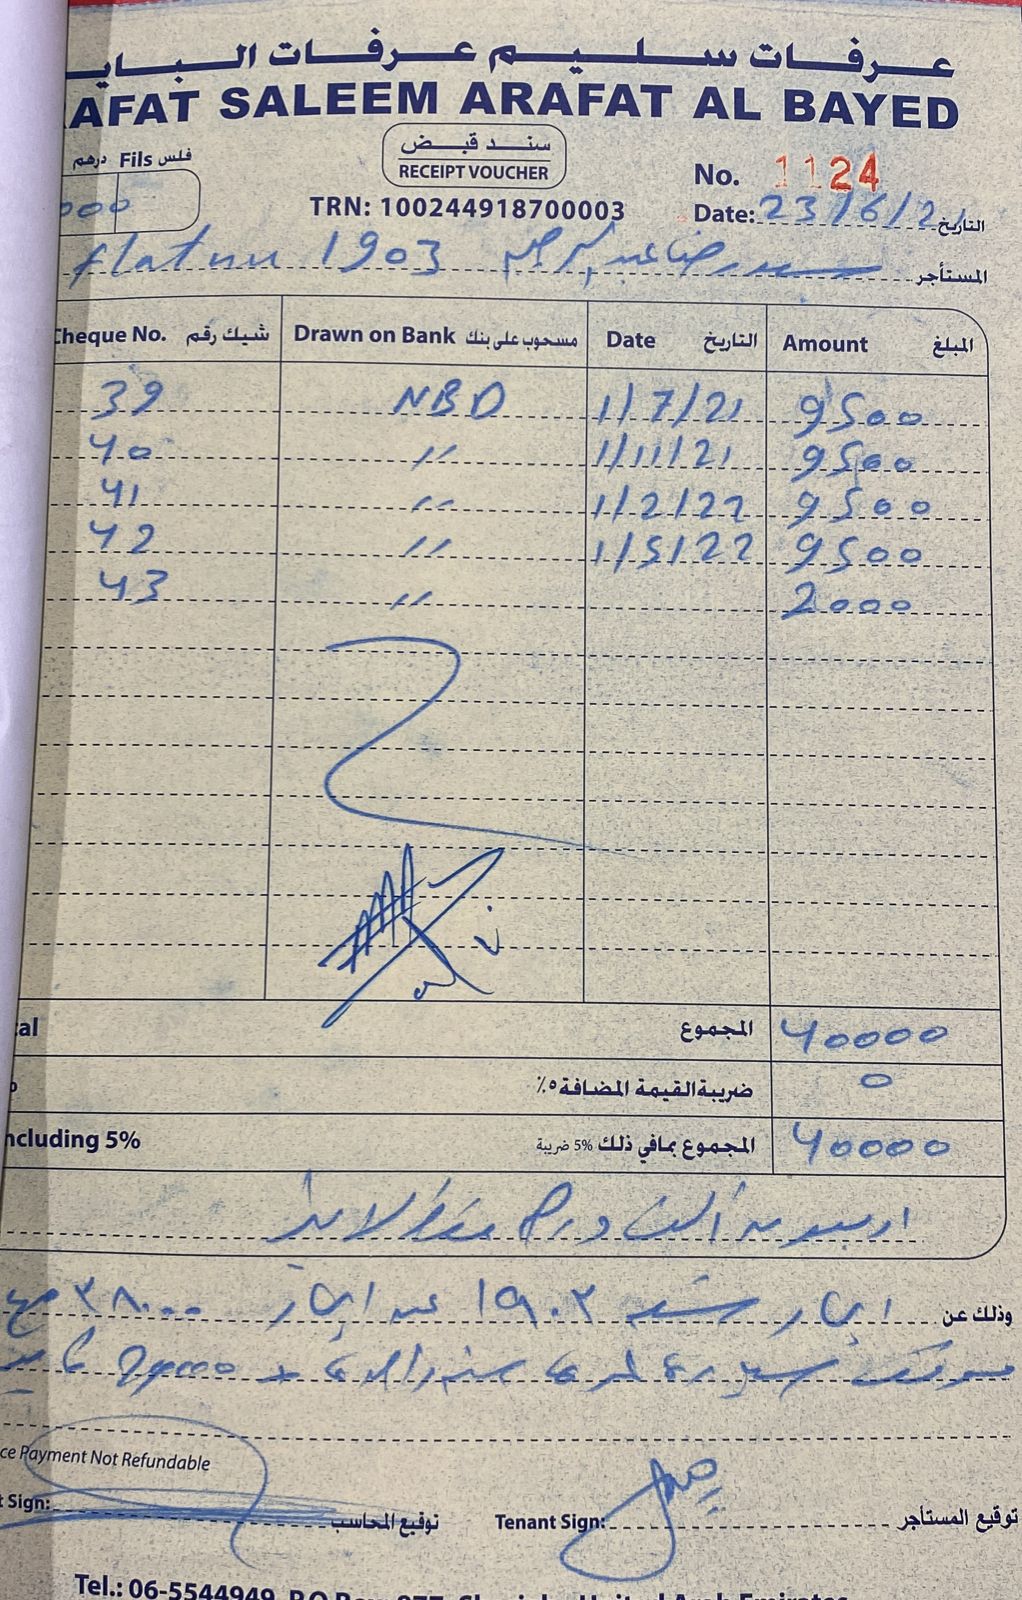 عرفات سليم عرفات البايـ
RAFAT SALEEM ARAFAT AL BAYED
درهم Fils فلس
سند قبض
RECEIPT VOUCHER
No. 1124
000
TRN: 100244918700003
Date: 23/6/21 التاريخ
flat 1903 المستأجر
Cheque No. شيك رقم Drawn on Bank مسحوب على بنك Date التاريخ Amount المبلغ
39 NBD 1/7/21 9500
40 〃 1/11/21 9500
41 〃 1/2/22 9500
42 〃 1/5/22 9500
43 〃 2000
tal المجموع 40000
ضريبة القيمة المضافة ٥٪ 0
ncluding 5% المجموع بمافي ذلك 5% ضريبة 40000
اربعون الف درهم فقط لا غير
وذلك عن ايجار شقة ١٩٠٣ عن ايجار ٣٨٠٠٠
2000
ce Payment Not Refundable
t Sign: توقيع المحاسب Tenant Sign: توقيع المستأجر
Tel.: 06-5544949